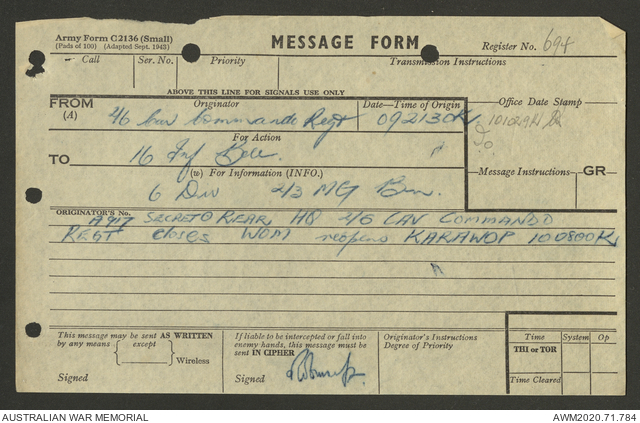 Army Form C2136 (Small)
(Pads of 100) (Adapted Sept. 1943)
MESSAGE FORM
Register No. 694
Call Ser. No. Priority Transmission Instructions
ABOVE THIS LINE FOR SIGNALS USE ONLY
FROM (A)
Originator
2/6 Cav Commando Regt
Date—Time of Origin
092130K
Office Date Stamp
TO
For Action
16 Inf Bde
(w) For Information (INFO.)
6 Div 2/3 MG Bn.
Message Instructions GR
ORIGINATOR'S No.
A917 SECRET O REAR HQ 2/6 CAV COMMANDO
REGT closes WOM reopens KARAWOP 100800K
This message may be sent AS WRITTEN
by any means except
Wireless
Signed
If liable to be intercepted or fall into
enemy hands, this message must be
sent IN CIPHER
Signed
Originator's Instructions
Degree of Priority
Time System Op
THI or TOR
Time Cleared
AUSTRALIAN WAR MEMORIAL
AWM2020.71.784